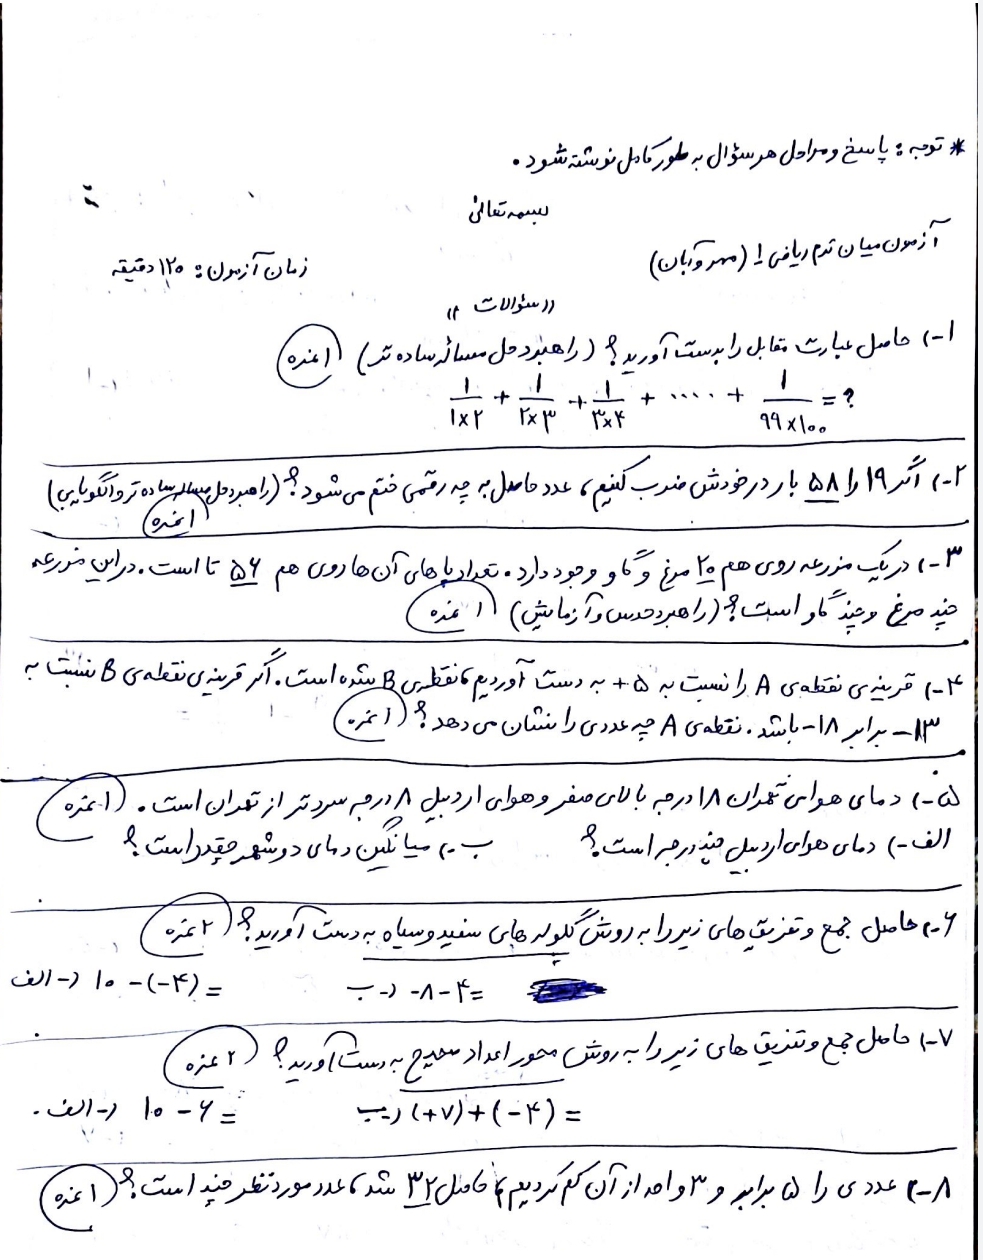 * توجه : پاسخ و مراحل هر سؤال به طور کامل نوشته شود .
بسمه تعالی
آزمون میان ترم ریاضی ! (مهر و آبان)
زمان آزمون : ۱۲۰ دقیقه
«سئوالات»
۱-) حاصل عبارت مقابل را بدست آورید؟ (راهبرد حل مسأله ساده تر) (۱ نمره)
1/۱×۲ + 1/۲×۳ + 1/۳×۴ + ..... + 1/۹۹×۱۰۰ = ?
۲-) اگر ۱۹ را ۵۸ بار در خودش ضرب کنیم، عدد حاصل به چه رقمی ختم می شود؟ (راهبرد حل مساله ساده تر و الگویابی)
(۱ نمره)
۳-) در یک مزرعه روی هم ۲۰ مرغ و گاو وجود دارد. تعداد پا های آن ها روی هم ۵۶ تا است. در این مزرعه
چند مرغ و چند گاو است؟ (راهبرد حدس و آزمایش) (۱ نمره)
۴-) قرینه ی نقطه ی A را نسبت به ۵+ به دست آوردیم، نقطه ی B شده است. اگر قرینه ی نقطه ی B نسبت به
۱۳- برابر ۱۸- باشد. نقطه ی A چه عددی را نشان می دهد؟ (۱ نمره)
۵-) دمای هوای تهران ۱۸ درجه بالای صفر و هوای اردبیل ۸ درجه سرد تر از تهران است. (۱ نمره)
الف-) دمای هوای اردبیل چند درجه است؟ ب-) میانگین دمای دو شهر چقدر است؟
۶-) حاصل جمع و تفریق های زیر را به روش گلوله های سفید و سیاه به دست آورید؟ (۲ نمره)
الف-) ۱۰ - (-۴) = ب-) -۸ - ۴ =
۷-) حاصل جمع و تفریق های زیر را به روش محور اعداد صحیح به دست آورید؟ (۲ نمره)
الف-) ۱۰ - ۶ = ب-) (+۷) + (-۴) =
۸-) عددی را ۵ برابر و ۳ واحد از آن کم کردیم، حاصل ۳۲ شد، عدد مورد نظر چند است؟ (۱ نمره)